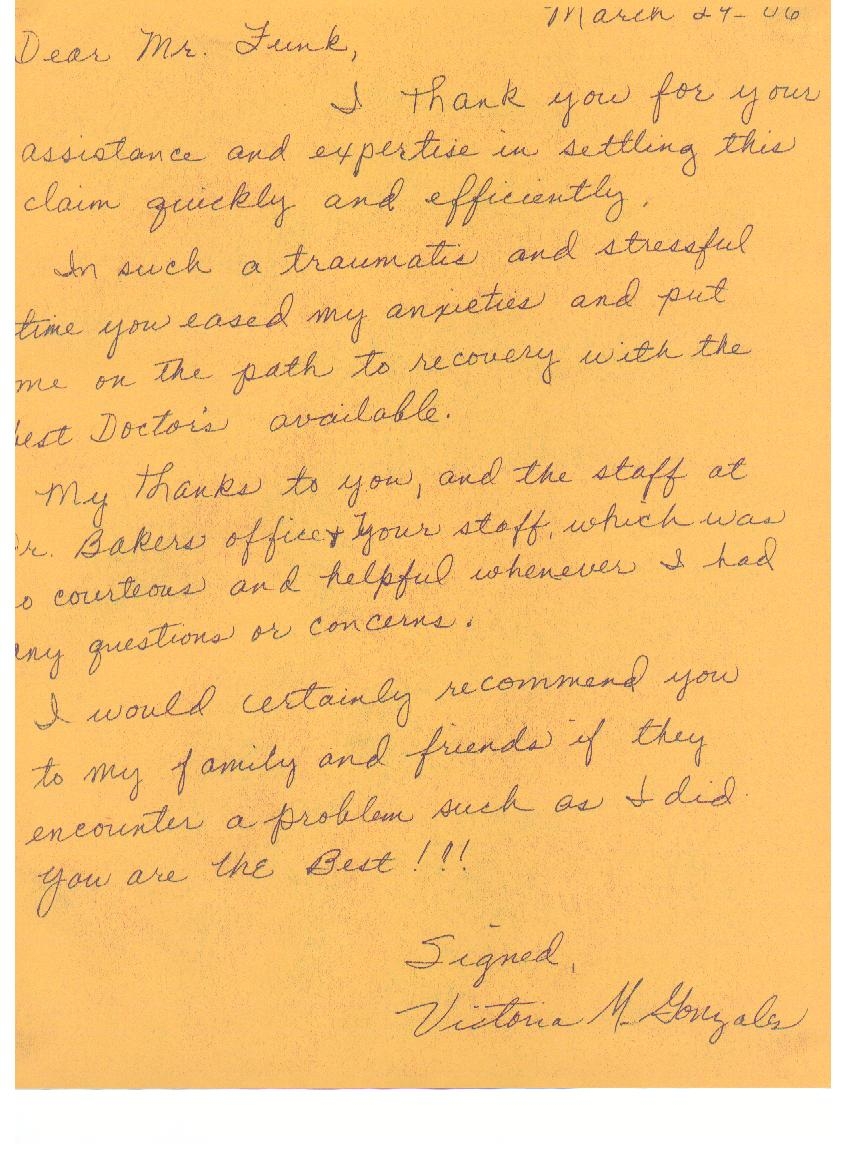 March 29-06
Dear Mr. Funk,
I thank you for your
assistance and expertise in settling this
claim quickly and efficiently.
In such a traumatic and stressful
time you eased my anxieties and put
me on the path to recovery with the
best Doctor's available.
My thanks to you, and the staff at
r. Bakers office & your staff, which was
o courteous and helpful whenever I had
any questions or concerns.
I would certainly recommend you
to my family and friends if they
encounter a problem such as I did.
You are the Best!!!
Signed,
Victoria M. Gonzales